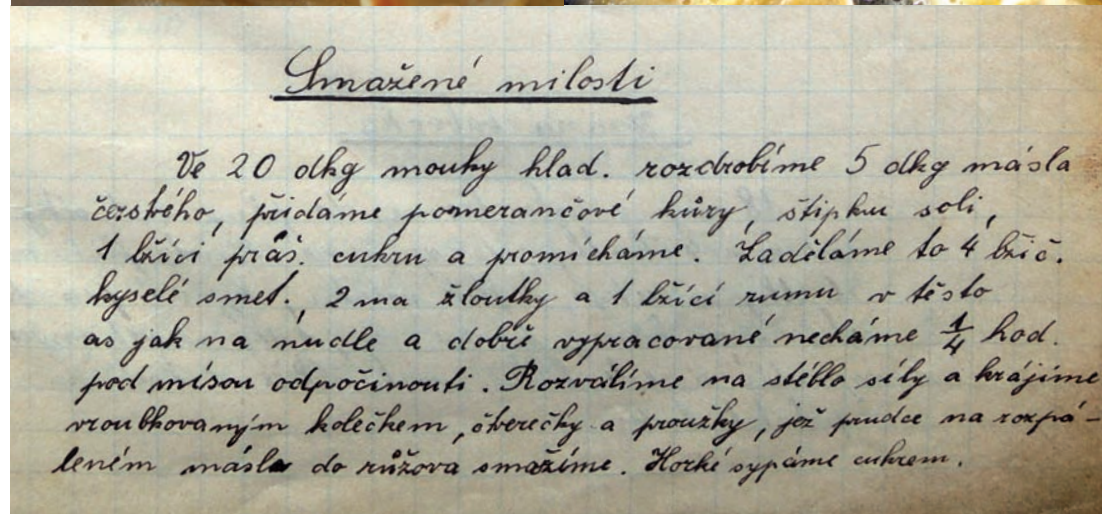 Smažené milosti
Ve 20 dkg mouky hlad. rozdrobíme 5 dkg másla
čerstvého, přidáme pomerančové kůry, štipku soli,
1 lžíci práš. cukru a promícháme. Zaděláme to 4 lžič.
kyselé smet., 2ma žloutky a 1 lžící rumu v těsto
as jak na nudle a dobře vypracované necháme 1/4 hod.
pod mísou odpočinouti. Rozválíme na stéblo síly a krájíme
vroubkovaným kolečkem, čtverečky a proužky, jež prudce na rozpá-
leném másle do růžova smažíme. Horké sypáme cukrem.